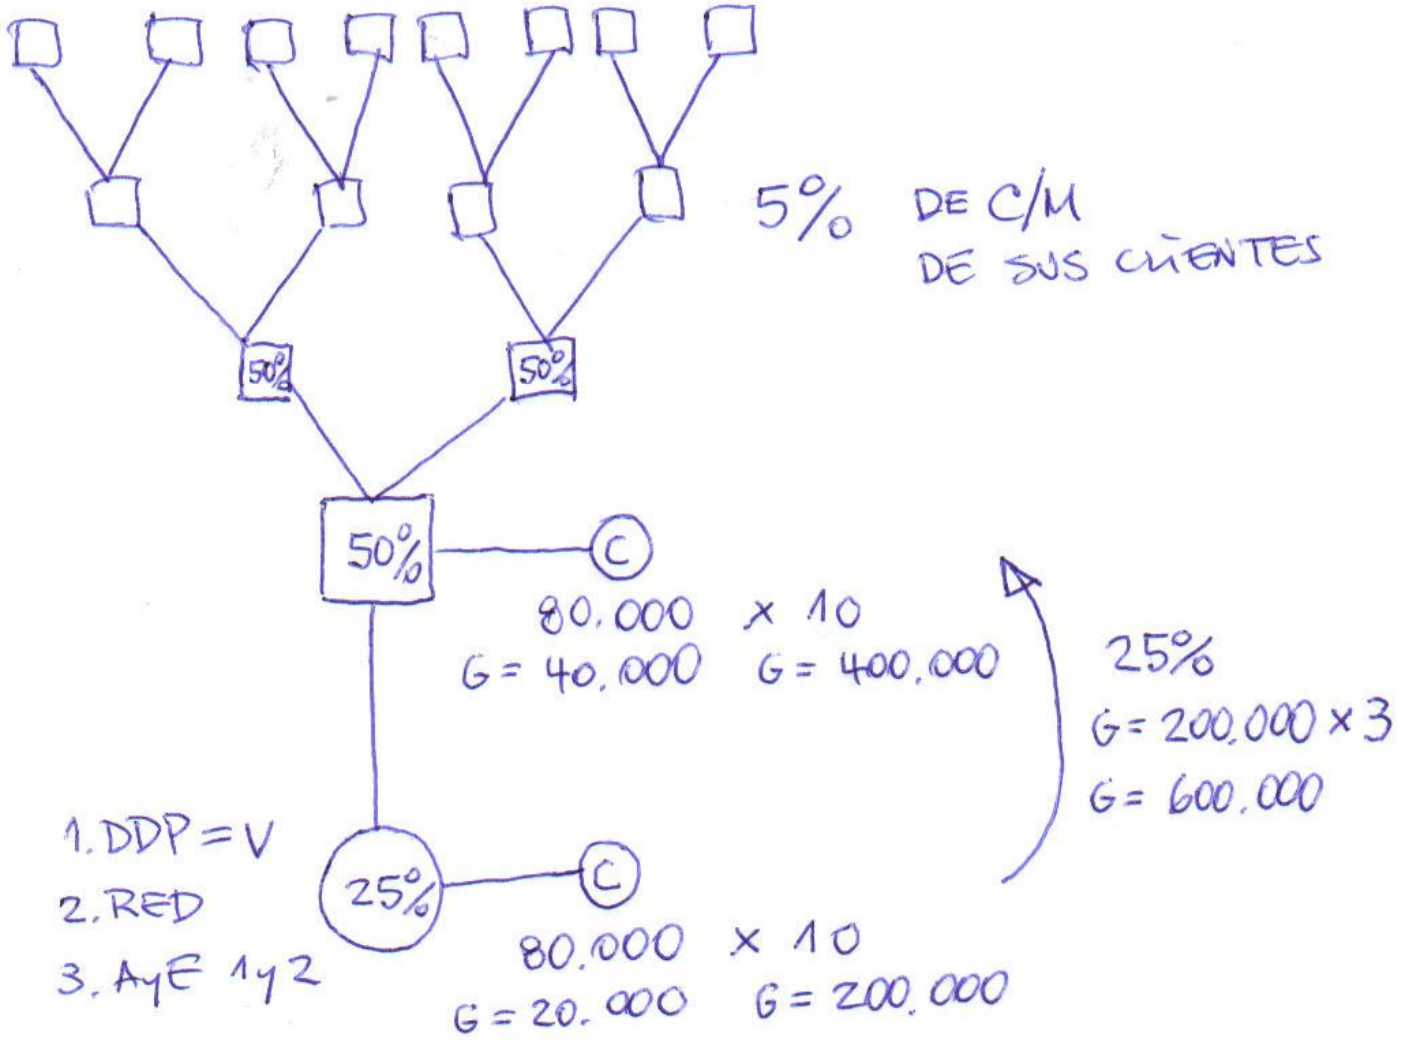 5% DE C/M
DE SUS CLIENTES
50% 50%
50% C
80.000 x 10
G = 40.000 G = 400.000
25%
G = 200.000 x 3
G = 600.000
1. DDP = V
2. RED
3. AyE 1y2
25% C
80.000 x 10
G = 20.000 G = 200.000